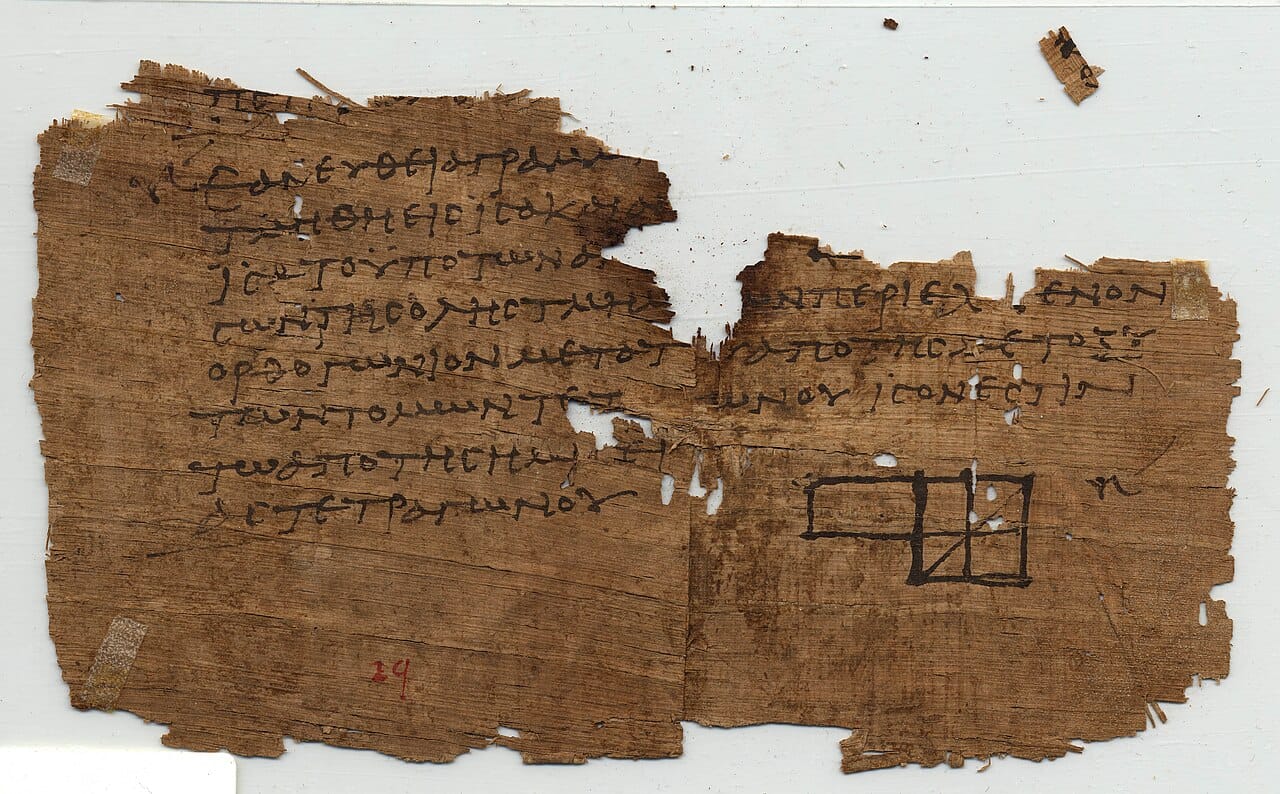 ΕΑΝ ΕΥΘΕΙΑ ΓΡΑΜ
ΤΜΗΘΗ ΕΙC ΙCΑ ΚΑΙ
ΙCΑ ΤΟ ΥΠΟ ΤΩΝ ΑΝ
CΩΝ ΤΗC ΟΛΗC ΤΜΗΜ ΩΝ ΠΕΡΙΕΧ ΕΝΟΝ
ΟΡΘΟΓΩΝΙΟΝ ΜΕΤΑ ΤΟΥ ΑΠΟ ΤΗC ΜΕΤΟΞΥ
ΤΩΝ ΤΟΜΩΝ ΤΕΤ ΩΝΟΥ ΙCΟΝ ΕCΤΙΝ
ΤΩ ΑΠΟ ΤΗC ΗΜΙ
ΑC ΤΕΤΡΑΓΩΝΟΥ
29